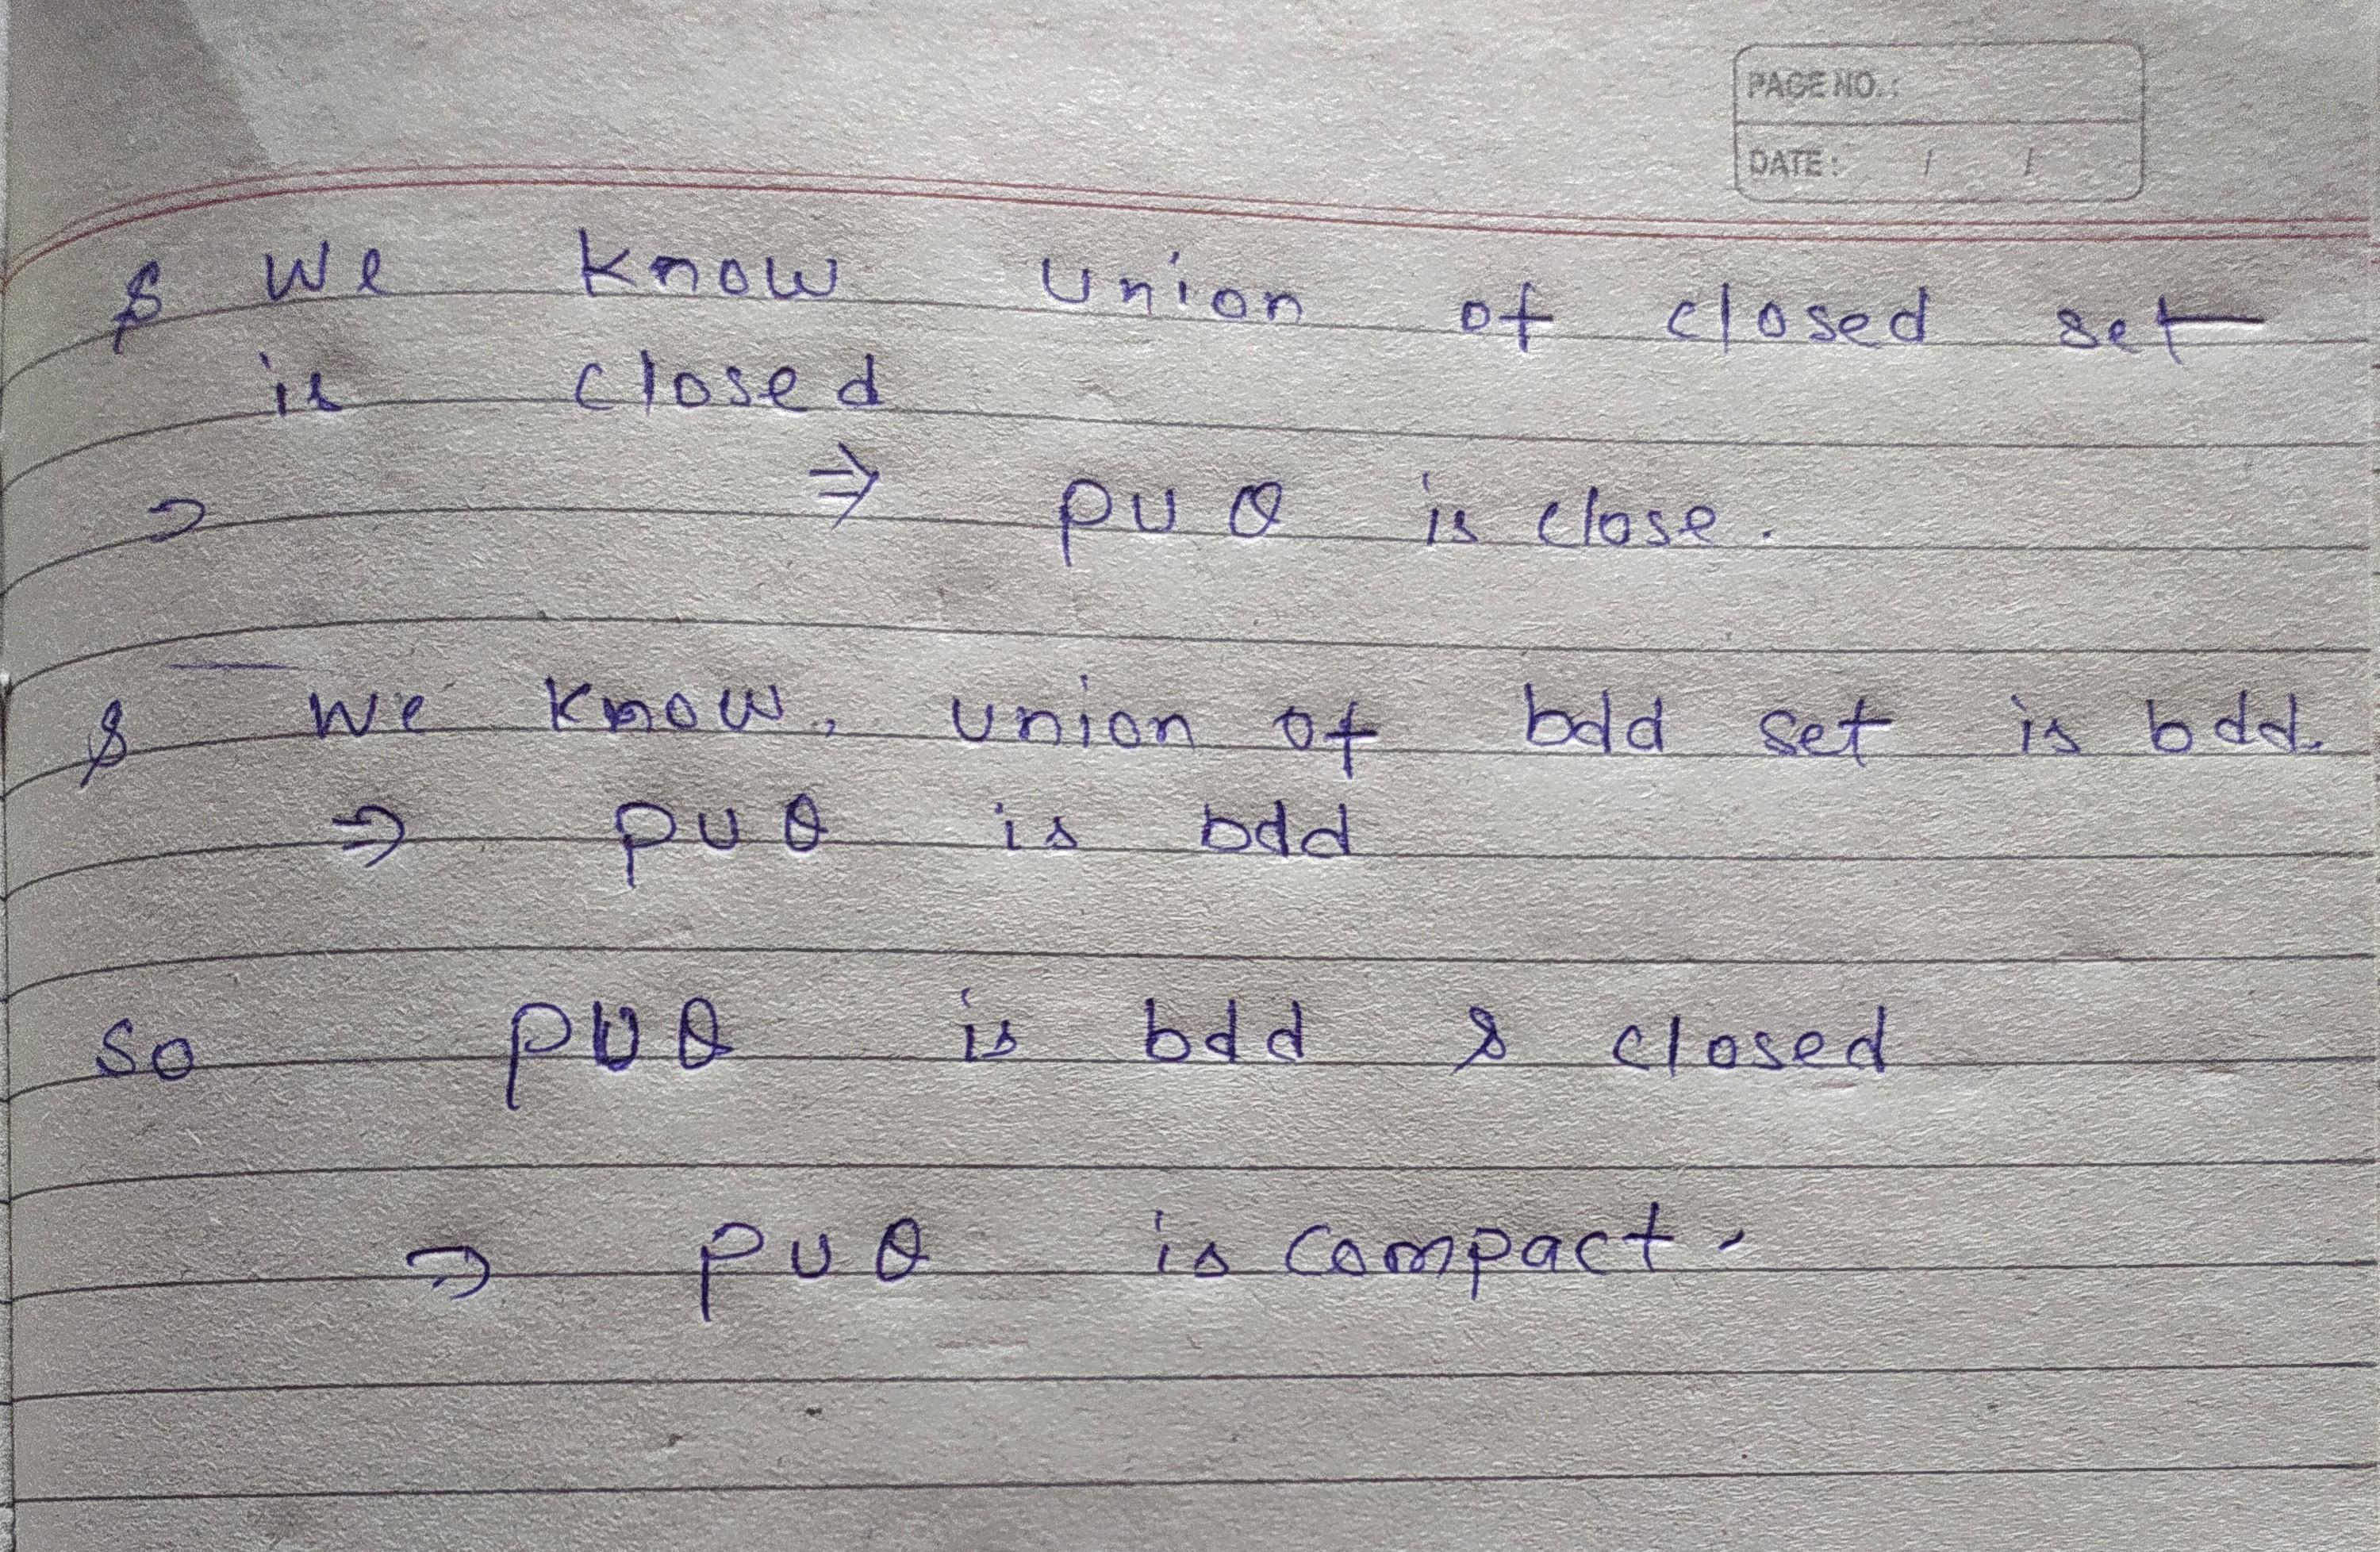 PAGE NO.:
DATE: / /
& we know union of closed set
is closed
⇒ P∪Q is close.
& we know, union of bdd set is bdd.
⇒ P∪Q is bdd
so P∪Q is bdd & closed
⇒ P∪Q is compact.